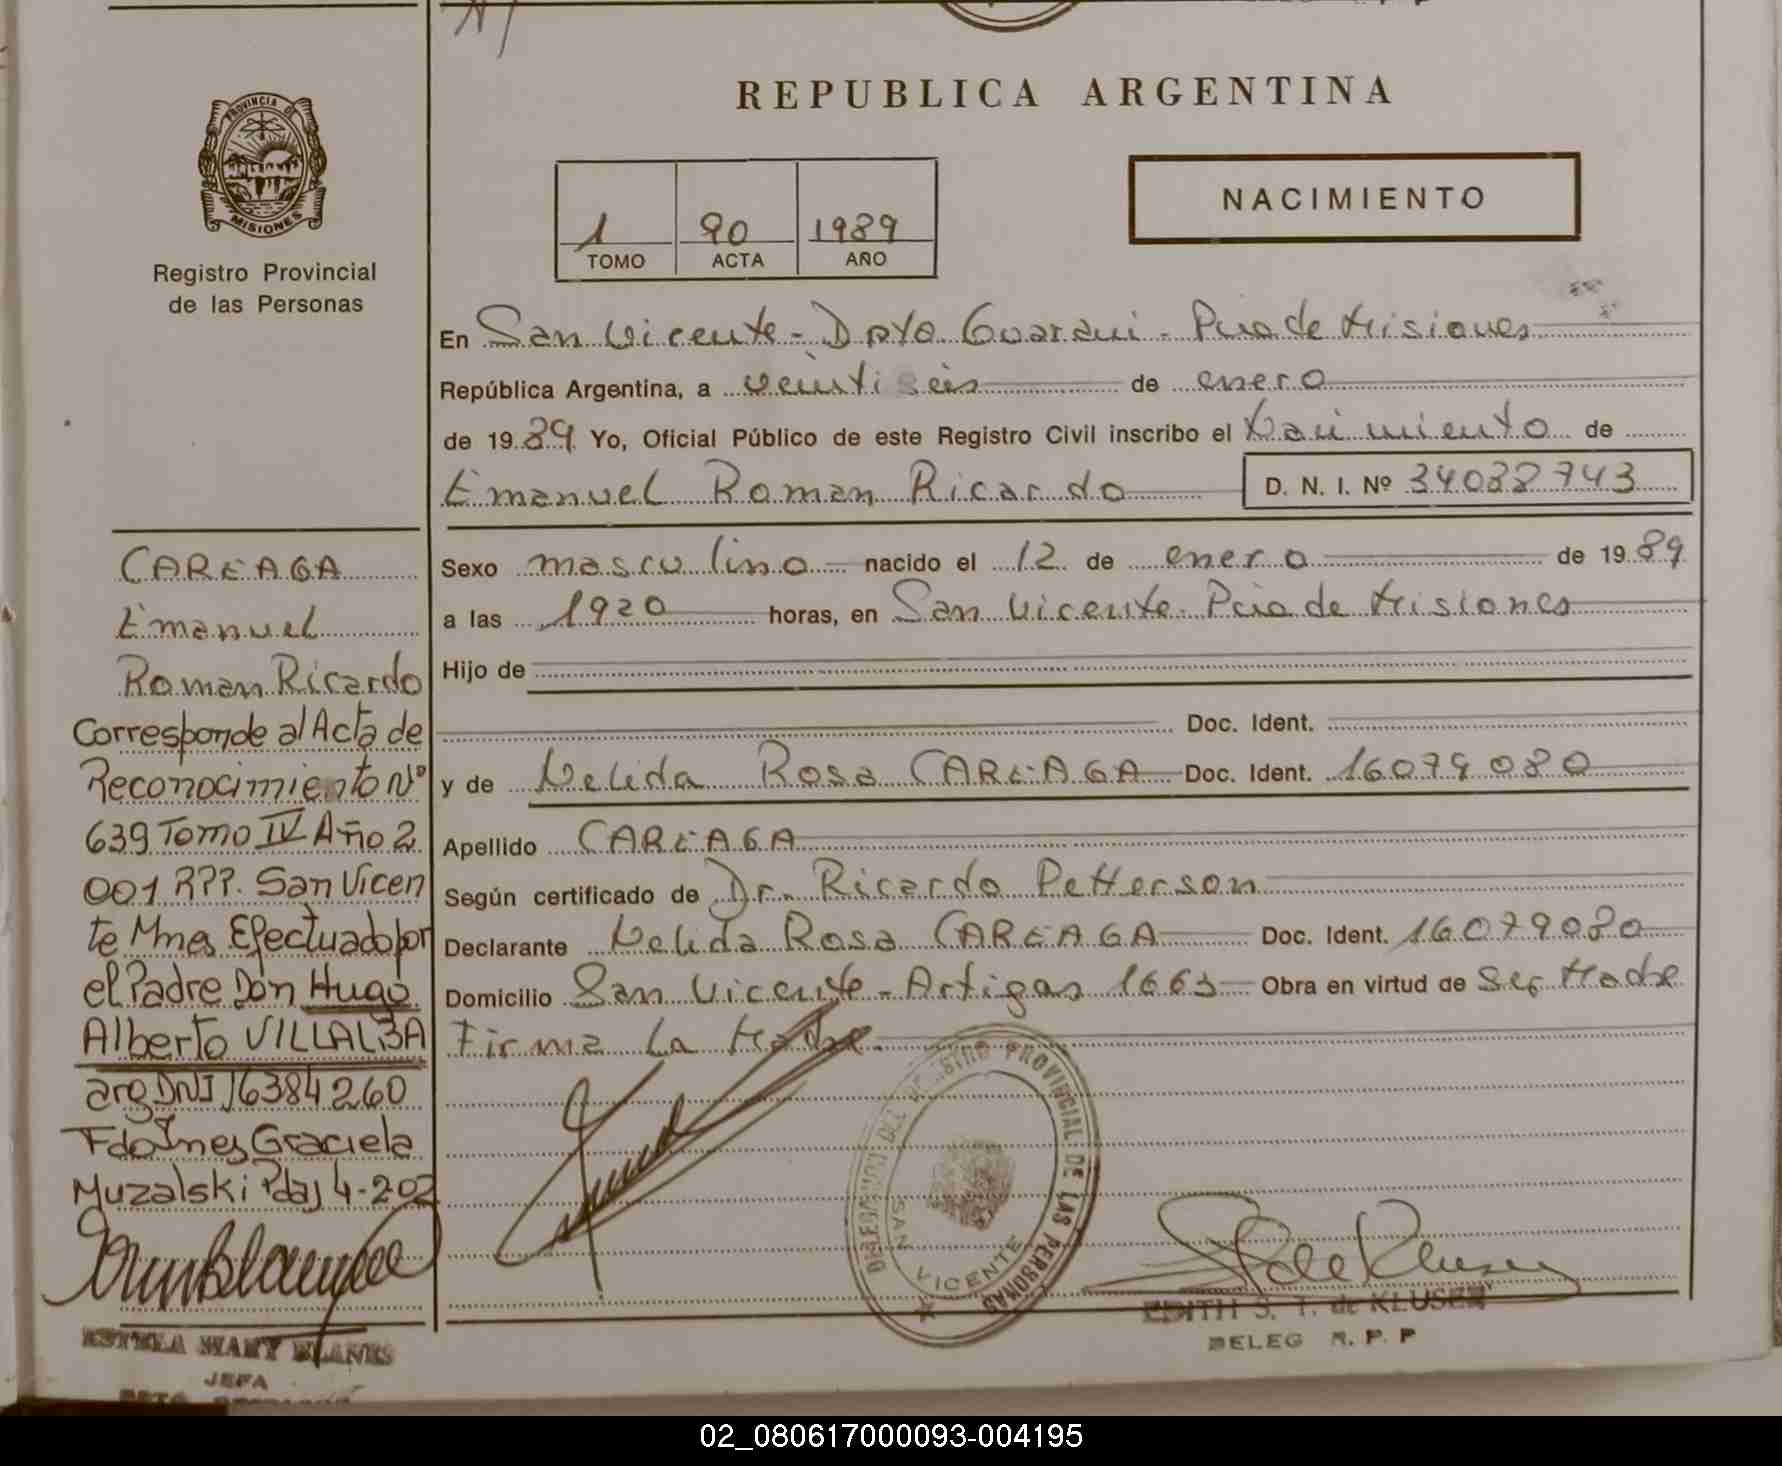 REPUBLICA ARGENTINA
PROVINCIA DE
MISIONES
Registro Provincial
de las Personas
1 90 1989
TOMO ACTA AÑO
NACIMIENTO
En San Vicente - Dpto Guarani - Pcia de Misiones
República Argentina, a veintiseis de enero
de 1989 Yo, Oficial Público de este Registro Civil inscribo el Nacimiento de
Emanuel Roman Ricardo D. N. I. Nº 34038743
Sexo masculino nacido el 12 de enero de 1989
a las 1920 horas, en San Vicente Pcia de Misiones
Hijo de
Doc. Ident.
y de Nelida Rosa CAREAGA Doc. Ident. 16079080
Apellido CAREAGA
Según certificado de Dr. Ricardo Petterson
Declarante Nelida Rosa CAREAGA Doc. Ident. 16079080
Domicilio San Vicente - Artigas 1663 Obra en virtud de Ser Madre
Firma La Madre.
CAREAGA
Emanuel
Roman Ricardo
Corresponde al Acta de
Reconocimiento Nº
639 Tomo IV Año 2
001 RPP. San Vicen
te Mnes Efectuado por
el Padre Don Hugo
Alberto VILLALBA
arg DNI 16384260
Fdo Ines Graciela
Muzalski Pdas 4-202
ESTELA MARY BLANES
JEFA
DELEGACION DEL REGISTRO PROVINCIAL DE LAS PERSONAS
SAN VICENTE
EDITH S. T. de KLUSEN
DELEG R. P. P
02_080617000093-004195